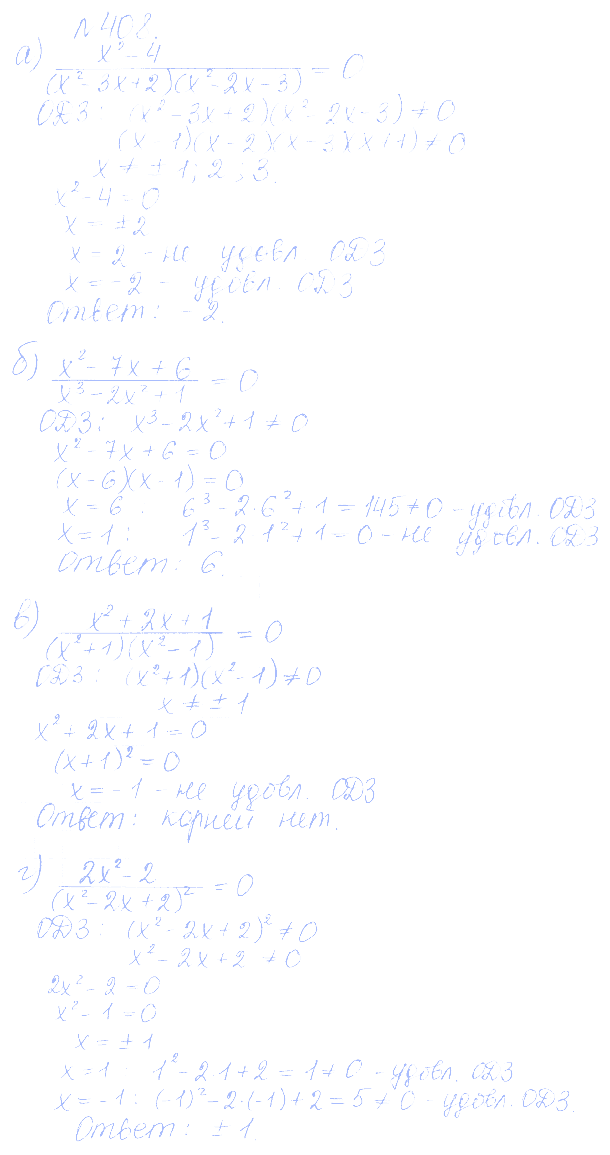 № 402.
а) (x² - 4)/((x² - 3x + 2)(x² - 2x - 3)) = 0
ОДЗ: (x² - 3x + 2)(x² - 2x - 3) ≠ 0
(x - 1)(x - 2)(x - 3)(x + 1) ≠ 0
x ≠ ± 1; 2; 3.
x² - 4 = 0
x = ±2
x = 2 - не удовл. ОДЗ
x = -2 - удовл. ОДЗ
Ответ: -2.
б) (x² - 7x + 6)/(x³ - 2x² + 1) = 0
ОДЗ: x³ - 2x² + 1 ≠ 0
x² - 7x + 6 = 0
(x - 6)(x - 1) = 0
x = 6: 6³ - 2·6² + 1 = 145 ≠ 0 - удовл. ОДЗ
x = 1: 1³ - 2·1² + 1 = 0 - не удовл. ОДЗ
Ответ: 6.
в) (x² + 2x + 1)/((x² + 1)(x² - 1)) = 0
ОДЗ: (x² + 1)(x² - 1) ≠ 0
x ≠ ± 1
x² + 2x + 1 = 0
(x + 1)² = 0
x = -1 - не удовл. ОДЗ
Ответ: корней нет.
г) (2x² - 2)/(x² - 2x + 2)² = 0
ОДЗ: (x² - 2x + 2)² ≠ 0
x² - 2x + 2 ≠ 0
2x² - 2 = 0
x² - 1 = 0
x = ± 1
x = 1: 1² - 2·1 + 2 = 1 ≠ 0 - удовл. ОДЗ
x = -1: (-1)² - 2·(-1) + 2 = 5 ≠ 0 - удовл. ОДЗ.
Ответ: ± 1.